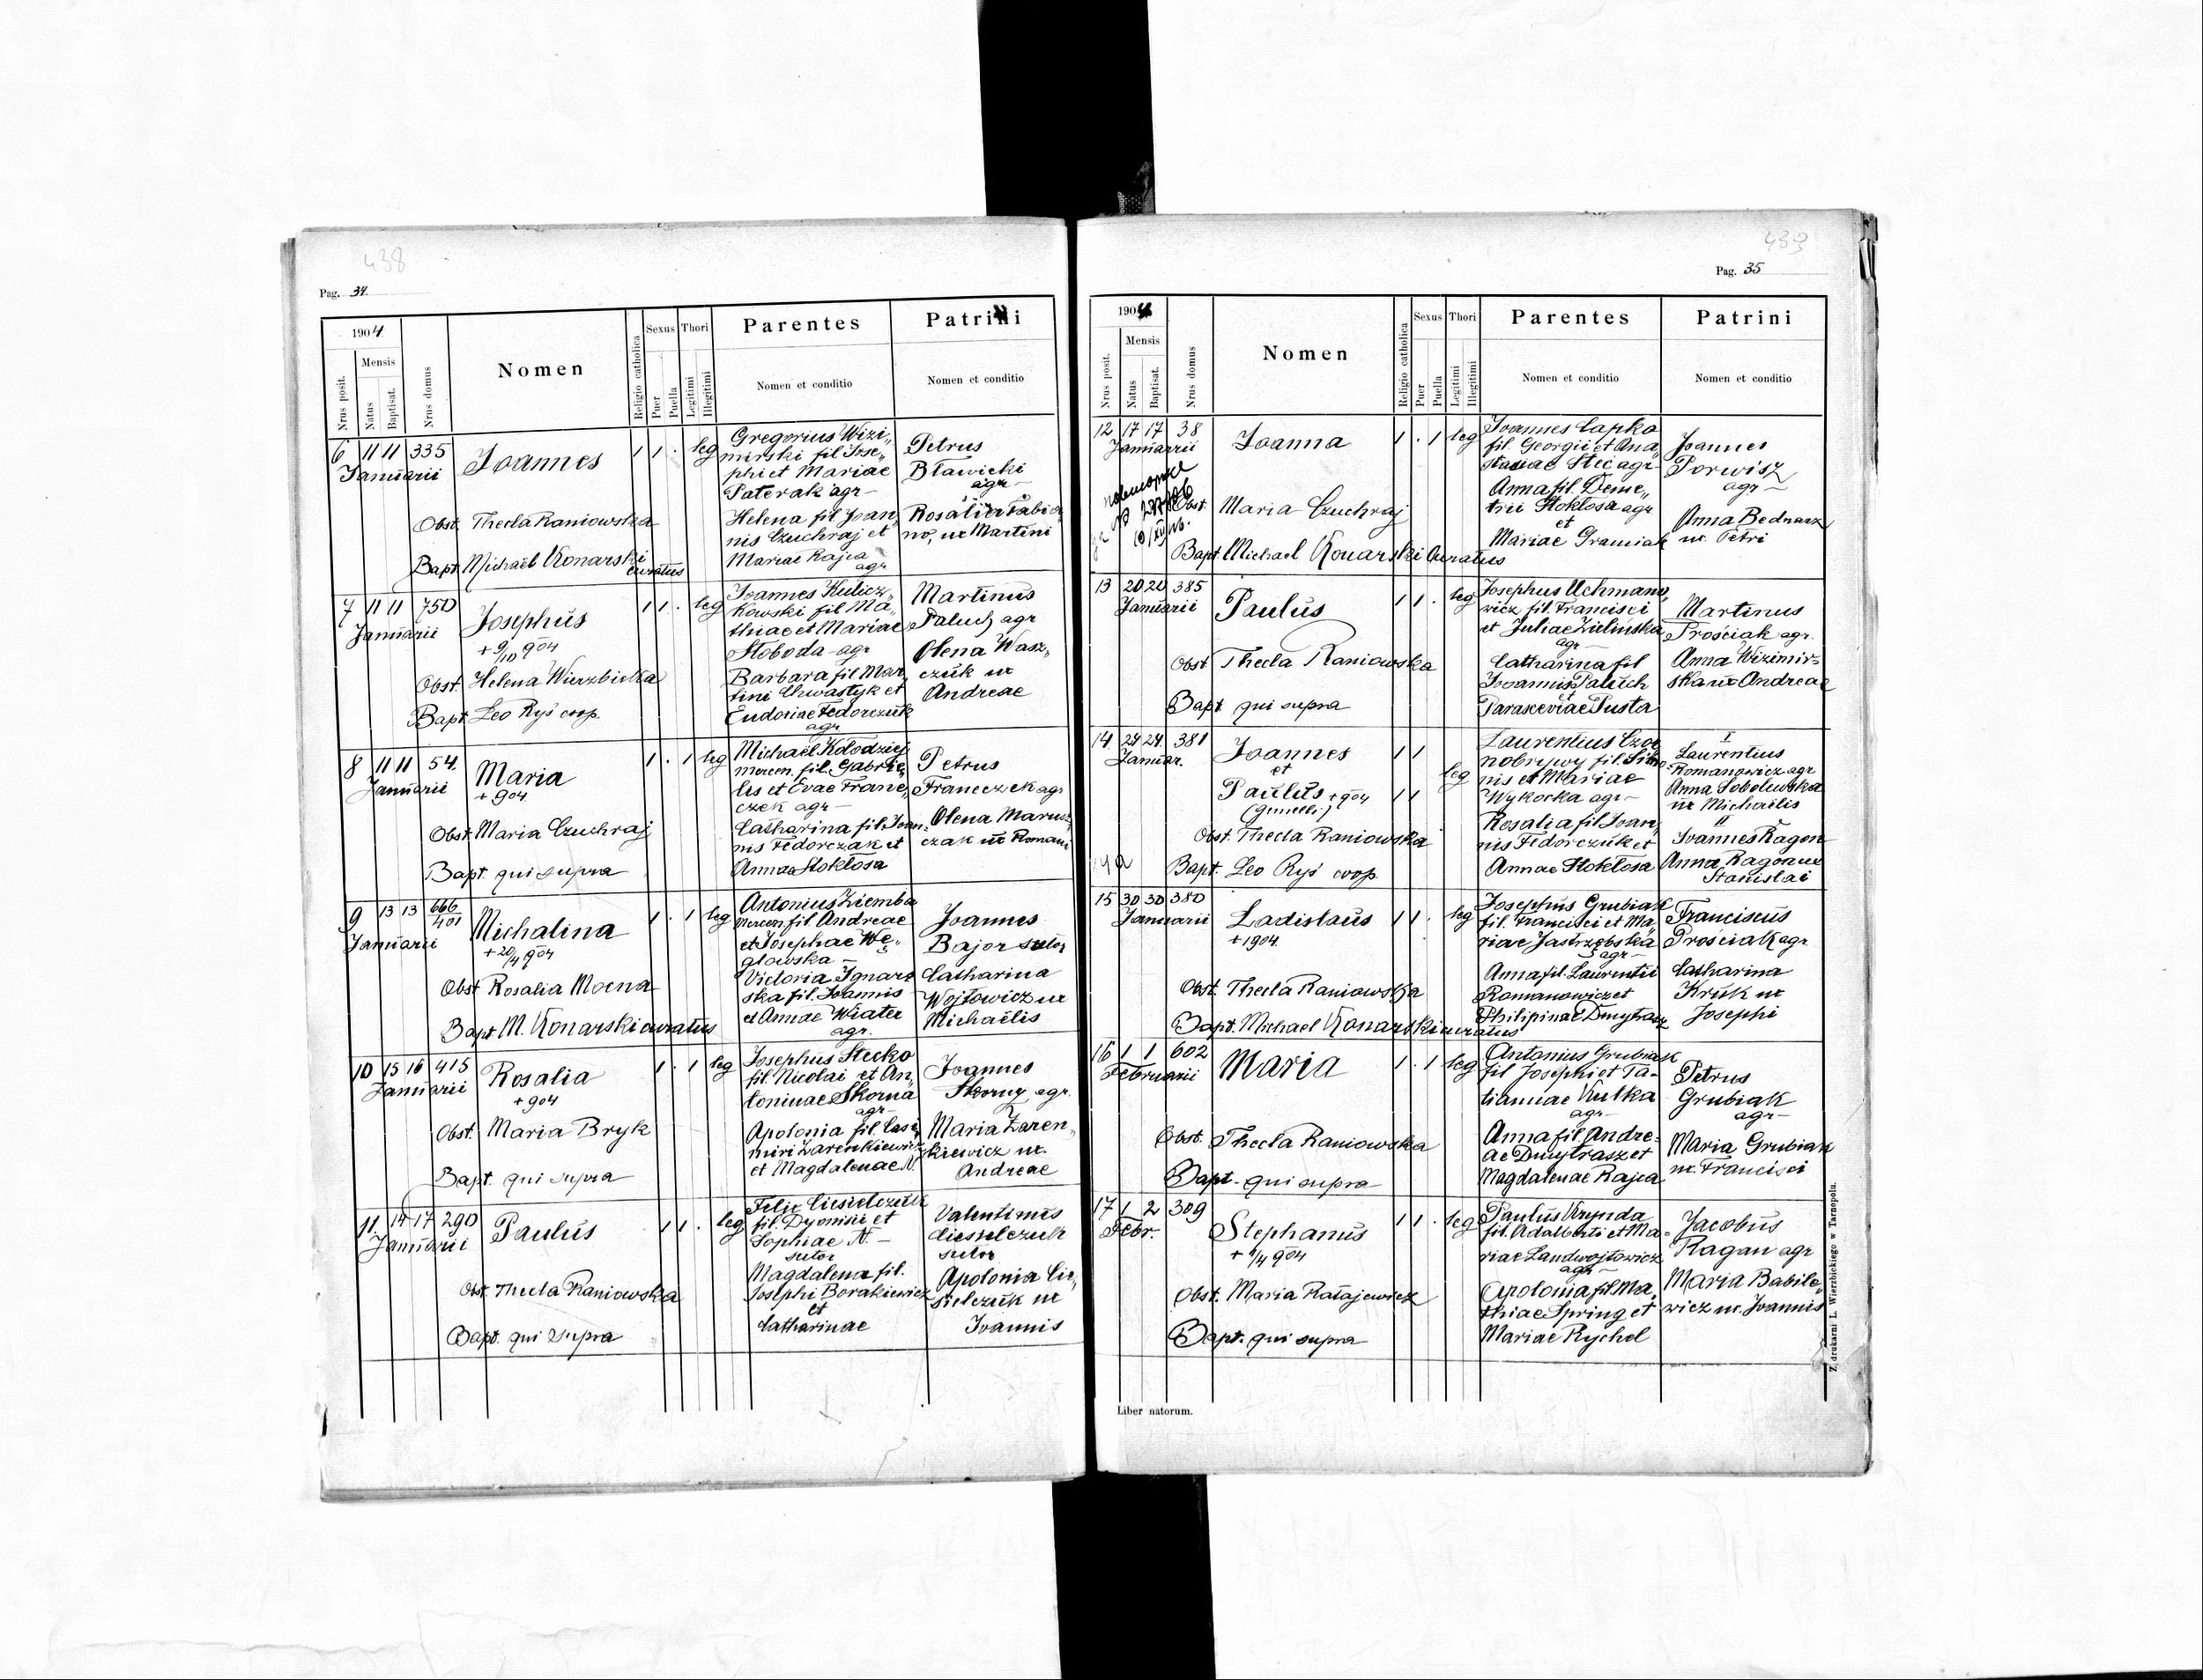 438
Pag. 34.
1904
Mensis
Nrus posit.
Natus
Baptisat.
Nrus domus
Nomen
Religio catholica
Sexus
Puer
Puella
Thori
Legitimi
Illegitimi
Parentes
Nomen et conditio
Patrini
Nomen et conditio
6 11 11 335 Joannes 1 1 . leg
Januarii
Gregorius Wizi„
mirski fil Jose„
phi et Mariae
Paterak agr
Helena fil Joan„
nis Czuchraj et
Mariae Rajca
agr
Petrus
Bławicki
agr
Rosalia
ux Martini
Obst. Thecla Raniowska
Bapt. Michaël Konarski
curatus
7 11 11 750 Josephus 1 1 . leg
Januarii
+ 9/10 904
Joannes Kulicz„
kowski fil Ma„
thiae et Mariae
Słoboda agr
Barbara fil Mar„
tini Chwastyk et
Eudoxiae Fedorczuk
agr
Martinus
Paluch agr
Olena Wasz„
czuk ux
Andreae
Obst. Helena Wierzbicka
Bapt. Leo Ryś coop.
8 11 11 54 Maria 1 . 1 leg
Januarii
+ 904
Michaël Kołodziej
mercen. fil. Gabrie„
lis et Evae Frane„
czek agr
Catharina fil. Joan„
nis Fedorczak et
Annae Stokłosa
Petrus
Franeczek agr
Olena Marusz„
czak ux Romani
Obst. Maria Czuchraj
Bapt. qui supra
9 13 13 666/401 Michalina 1 . 1 leg
Januarii
+ 20/4 904
Antonius Ziemba
mercen fil. Andreae
et Josephae We„
głowska
Victoria Ignars
ska fil. Joannis
et Annae Wiater
agr.
Joannes
Bajor sutor
Catharina
Wojtowicz ux
Michaëlis
Obst. Rosalia Mocna
Bapt. M. Konarski curatus
10 15 16 415 Rosalia 1 . 1 leg
Januarii
+ 904
Josephus Stecko
fil. Nicolai et An„
toninae Skorna
agr
Apolonia fil. Casi„
miri Zarenkiewicz
et Magdalenae N.
Joannes
Skorny agr.
Maria Zaren„
kiewicz ux.
Andreae
Obst. Maria Bryk
Bapt. qui supra
11. 14 17 290 Paulus 1 1 . leg
Januarii
Felix Ciesielczuk
fil. Dyonisii et
Sophiae N.
sutor
Magdalena fil.
Josephi Borakiewicz
et
Catharinae
Valentinus
Ciesielczuk
sutor
Apolonia Cie„
sielczuk ux
Joannis
Obst. Thecla Raniowska
Bapt. qui supra
439
Pag. 35
190
Mensis
Nrus posit.
Natus
Baptisat.
Nrus domus
Nomen
Religio catholica
Sexus
Puer
Puella
Thori
Legitimi
Illegitimi
Parentes
Nomen et conditio
Patrini
Nomen et conditio
12 17 17 38 Joanna 1 . 1 leg
Januarii
Joannes Capko
fil. Georgii et Ana„
stasiae Stec agr
Anna fil. Deme„
trii Stokłosa agr
et
Mariae Gramiak
Joannes
Porwisz
agr
Anna Bednarz
ux. Petri
Obst. Maria Czuchraj
Bapt. Michael Konarski curatus
13 20 20 385 Paulus 1 1 . leg
Januarii
Josephus Uchmano„
wicz fil. Francisci
et Juliae Zielinska
agr
Catharina fil
Joannis Paluch
et
Parasceviae Susta
Martinus
Prościak agr.
Anna Wizimir„
ska ux Andreae
Obst. Thecla Raniowska
Bapt qui supra
14 24 24 381 Joannes 1 1
Januar.
et
leg
Paulus + 904 1 1
(gemelli)
Laurentius Czor
nobrywy fil. Simo
nis et Mariae
Wykocka agr
Rosalia fil Joan„
nis Fedorczuk et
Annae Stokłosa
I
Laurentius
Romanowicz agr
Anna Sobolewska
ux Michaëlis
II
Joannes Ragan
Anna Ragan ux
Stanislai
Obst. Thecla Raniowska
14a Bapt. Leo Ryś coop.
15 30 30 380 Ladislaus 1 1 . leg
Januarii
+ 1904
Josephus Grubiak
fil. Francisci et Ma„
riae Jastrzębska
agr
Anna fil. Laurentii
Romanowicz et
Philipinae Dmytrasz
Franciscus
Prościak agr
Catharina
Kruk ux
Josephi
Obst. Thecla Raniowska
Bapt. Michael Konarski curatus
16 1 1 602 Maria 1 . 1 leg
Februarii
Antonius Grubiak
fil Josephi et Ta„
tianiae Kulka
agr
Anna fil. Andre„
ae Dmytrasz et
Magdalenae Rajca
Petrus
Grubiak
agr
Maria Grubiak
ux. Francisci
Obst. Thecla Raniowska
Bapt. qui supra
17 1 2 309 Stephanus 1 1 . leg
Febr.
904
Paulus Krynda
fil. Adalberti et Ma„
riae Landwojtowicz
agr
Apolonia fil. Ma„
thiae Spring et
Mariae Rychel
Jacobus
Ragan agr
Maria Babile„
wicz ux. Joannis
Obst. Maria Ratajewicz
Bapt. qui supra
Liber natorum.
Z drukarni L. Wierzbickiego w Tarnopolu.